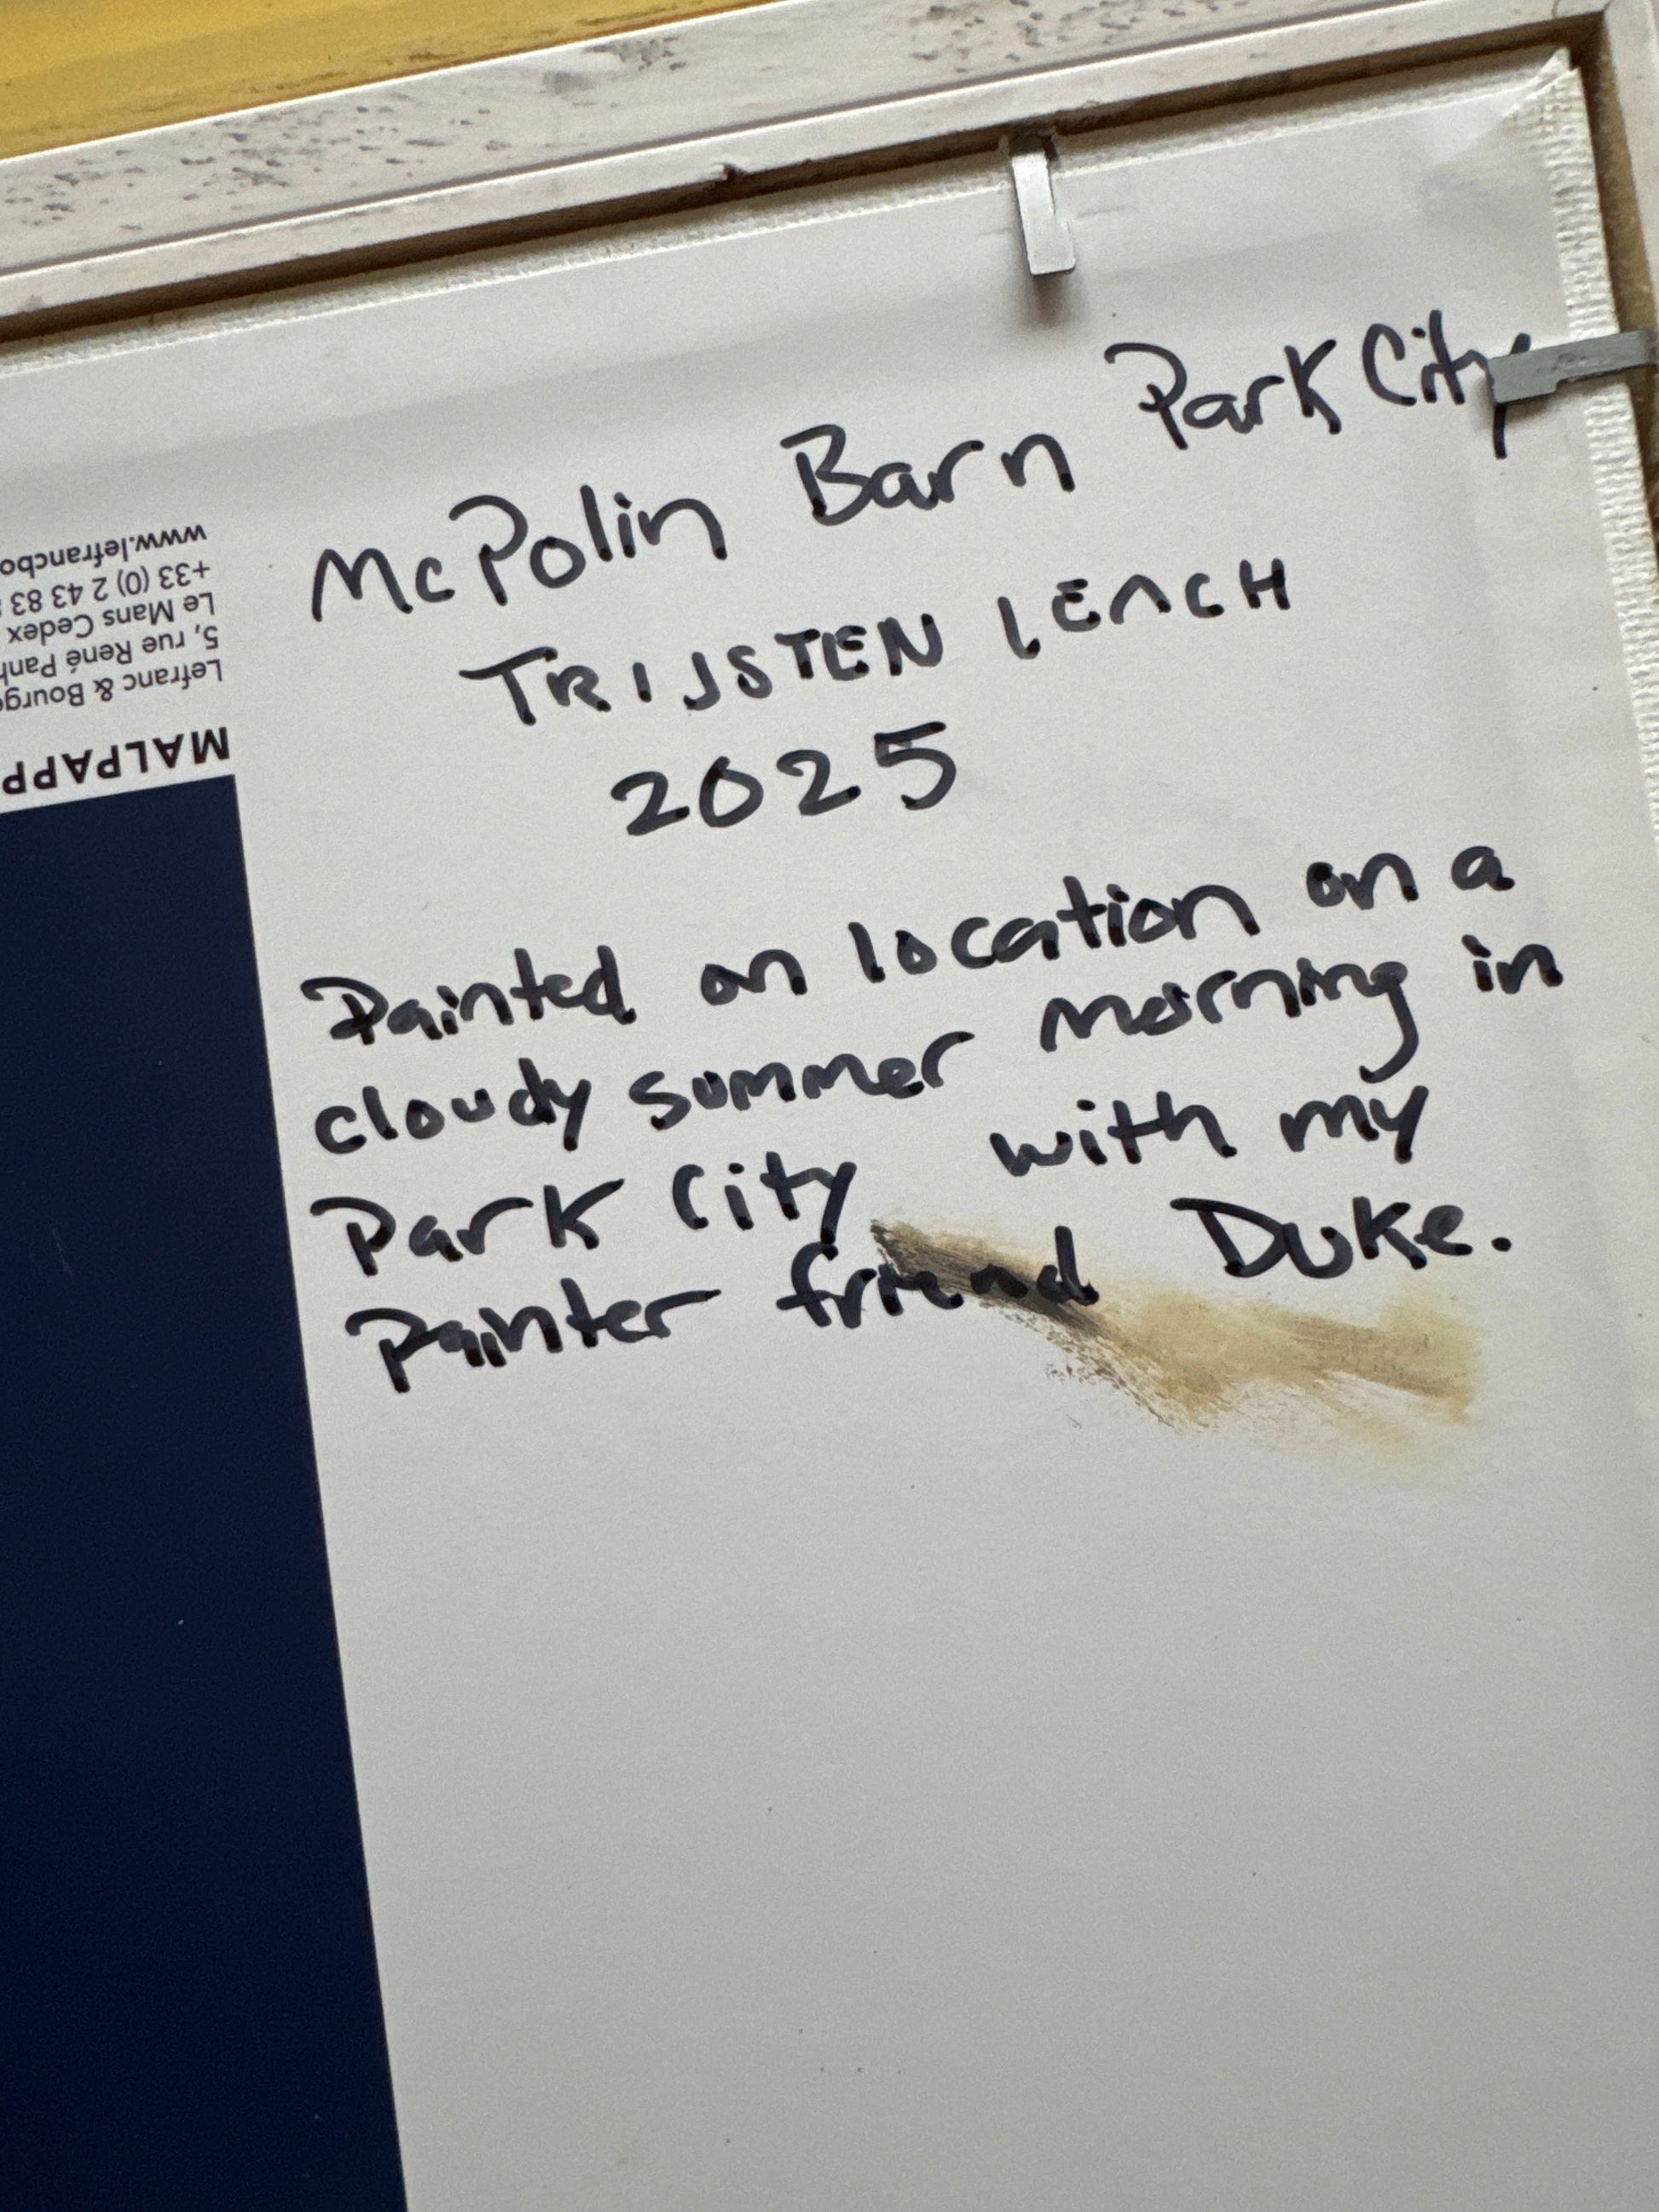 McPolin Barn Park City
TRIJSTEN LEACH
2025
Painted on location on a
cloudy summer morning in
Park City with my
Painter friend Duke.
MALPAPP
Lefranc & Bourg
5, rue René Panh
Le Mans Cedex
+33 (0) 2 43 83
www.lefrancbo